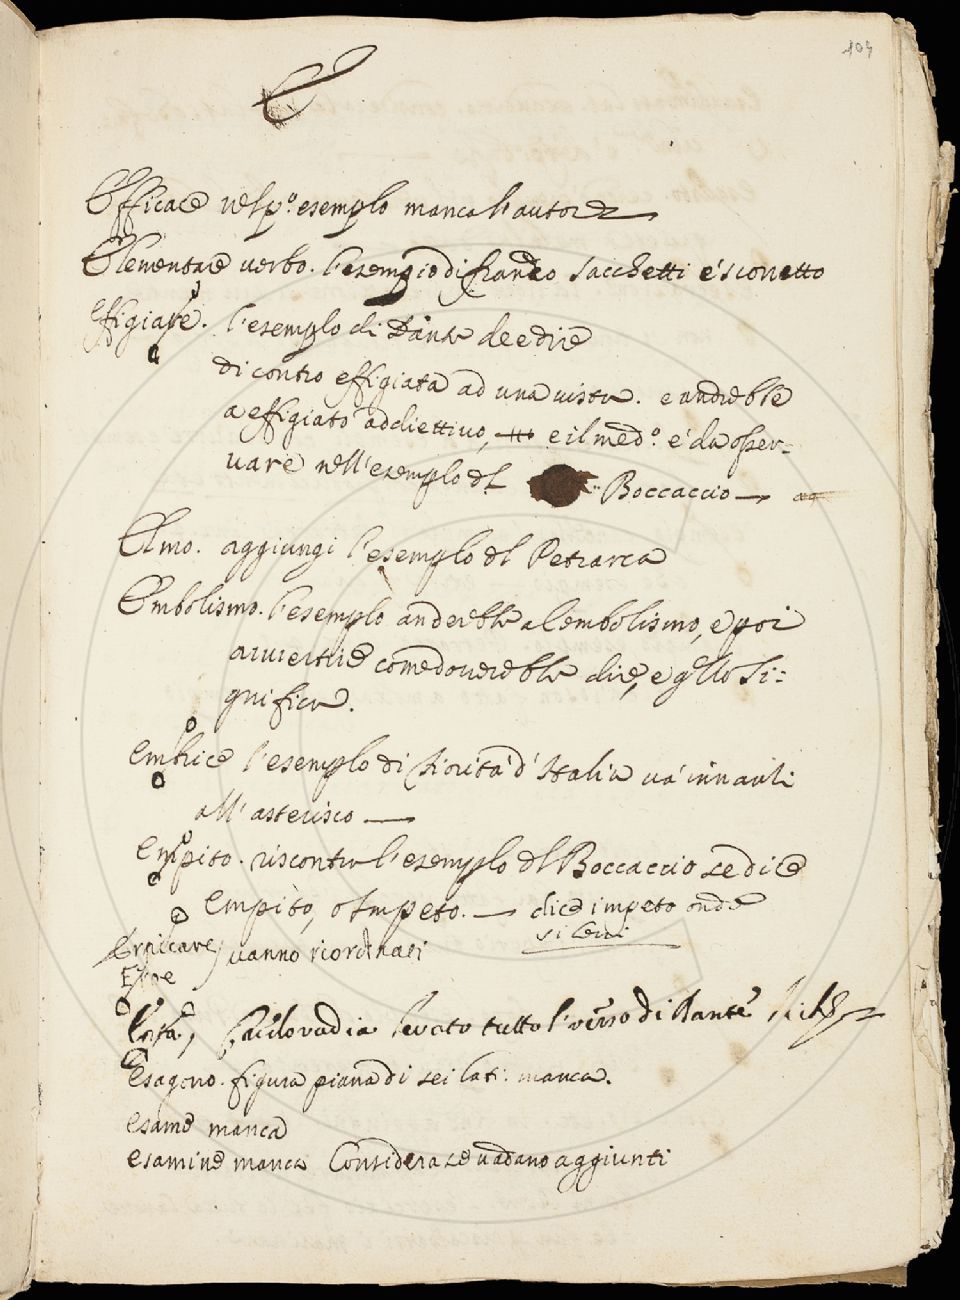 104
E
Efficace nel pº. esempio manca l'autore
Elementare verbo. l'esempio di franco Sacchetti é scorretto
effigiare. l'esempio di Dante dee dire
di contro effigiata ad una vista. e andrebbe
a effigiato addiettivo, e il med.º é da osser-
vare nell'esemplo del Boccaccio
Elmo. aggiungi l'esemplo del Petrarca
Embolismo. l'esemplo anderebbe a l'embolismo, e poi
avvertire come dovrebbe dire, e qllo si-
gnifica.
embrice l'esemplo di Fiorita d'Italia va innanzi
all'asterisco
empito. riscontra l'esemplo del Boccaccio se dice
empito, o Impeto. dice impeto onde
si levi
Erpicare vanno riordinati
Erpe
levato tutto l'verso di Dante
Esagono. figura piana di sei lati. manca.
esame manca
esamine manca Considera se vadano aggiunti